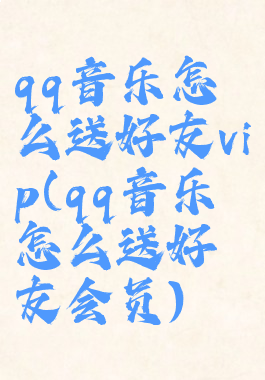 qq音乐怎
么送好友vi
p(qq音乐
怎么送好
友会员)